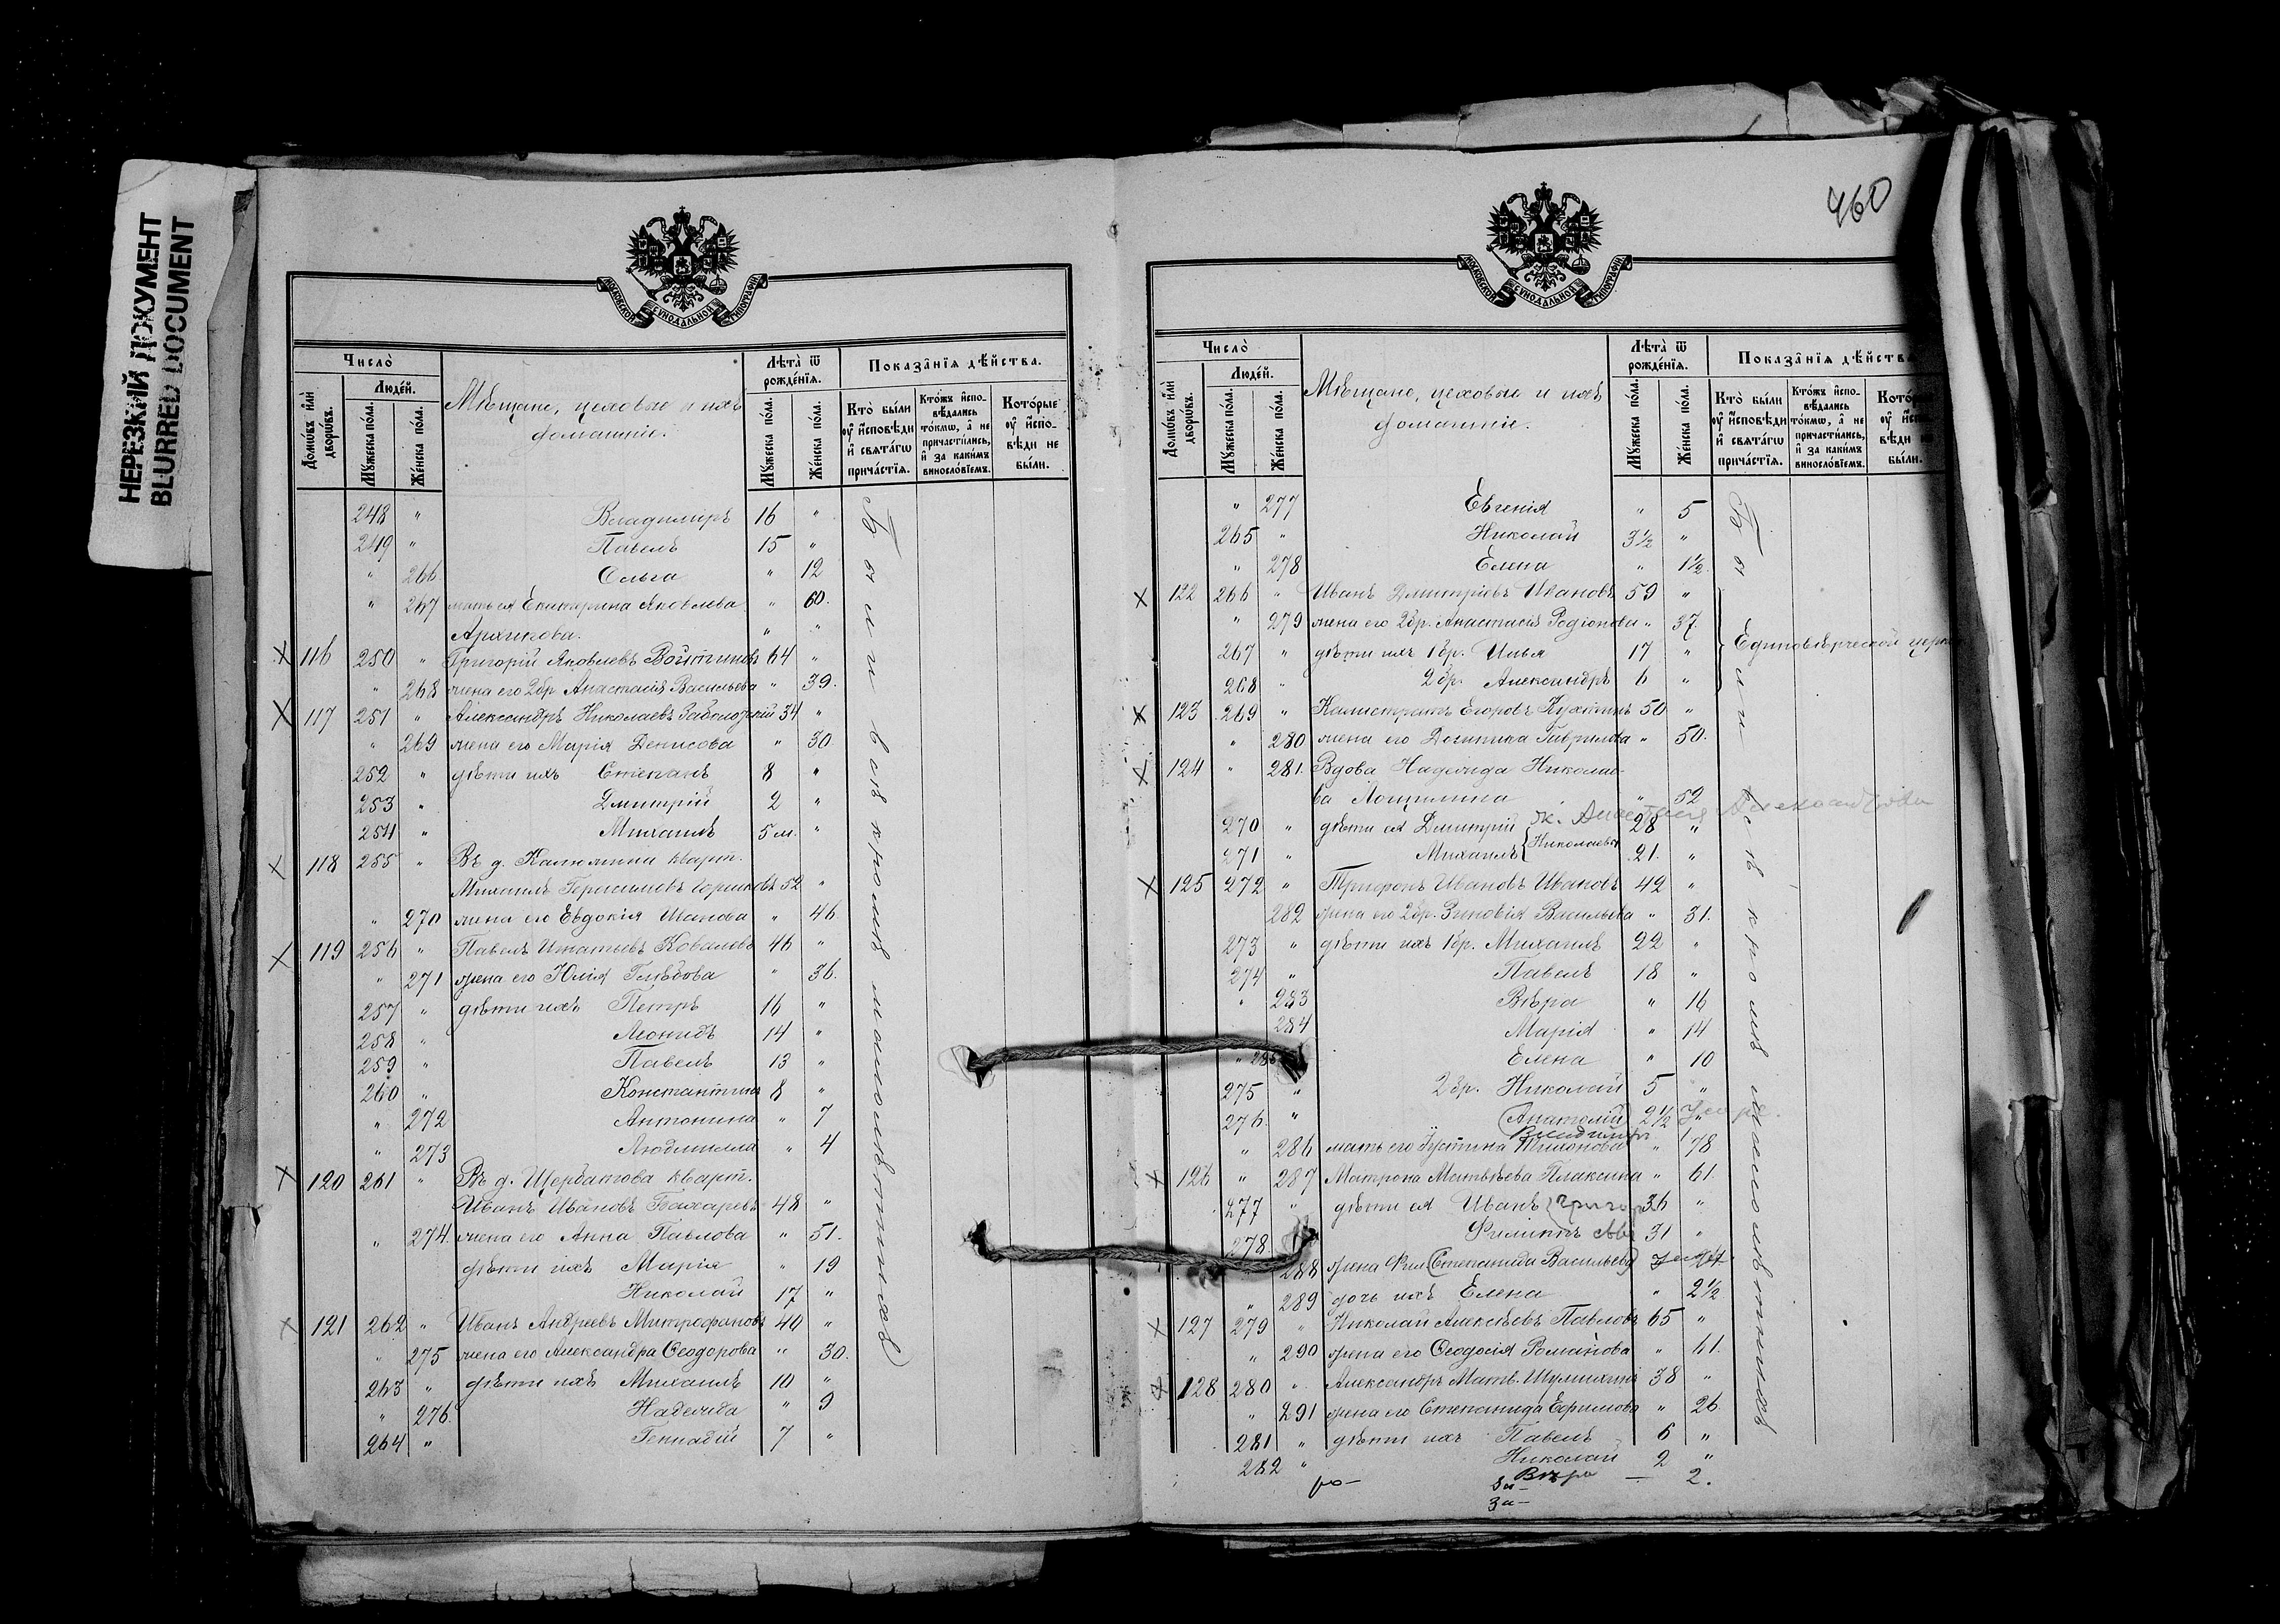 НЕРЕЗКИЙ ДОКУМЕНТ
BLURRED DOCUMENT
МОСКОВСКОЙ СУНОДАЛЬНОЙ ТИПОГРАФІИ
Число̀
Людей.
Домѡвъ и҆лѝ дворѡвъ.
Мꙋжеска пола.
Женска пола.
Мѣщане, цеховые и ихъ
домашніе.
Лѣта̀ ѿ рожденїѧ.
Мꙋжеска пола.
Женска пола.
Показа̂нїѧ дѣйства.
Кто̀ были оу҆ и҆сповѣди и҆ свѧтагѡ причастїѧ.
Ктожъ и҆спо-вѣдались токмѡ, а҆ не причастились, и҆ за какимъ винословїемъ.
Которые оу҆ и҆спо-вѣди не были.
248 " Владимиръ 16 "
249 " Павелъ 15 "
" 266 Ольга " 12
" 267 мать ея Екатерина Яковлева " 60.
" "
116 250 " Григорій Яковлевъ 64 "
" 268 жена его 2бр Анастасія Васильева " 39.
117 251 " Александръ Николаевъ Заболоцкій 34 "
" 269 жена его Марія Денисова " 30
252 " дѣти ихъ Степанъ 8 "
253 " Дмитрій 2 "
254 " Михаилъ 5 м. "
118 255 " Въ д. кварт.
Михаилъ Герасимовъ Горшковъ 52 "
" 270 жена его Евдокія Иванова " 46
119 256 " Павелъ Игнатьевъ Ковалевъ 46 "
" 271 жена его Юлія Глѣбова " 36.
257 " дѣти ихъ Петръ 16 "
258 " Леонидъ 14 "
259 " Павелъ 13 "
260 " Константинъ 8 "
" 272 Антонина " 7
" 273 Людмилла " 4
120 261 " Въ д. Щербатова кварт.
Иванъ Ивановъ 48 "
" 274. жена его Анна Павлова " 51.
дѣти ихъ Марія " 19
Николай 17 "
121 262 " Иванъ Андреевъ Митрофановъ 40 "
" 275 жена его Александра Ѳеодорова " 30.
263 " дѣти ихъ Михаилъ 10 "
" 276. Надежда " 9
264 " Геннадій 7 "
Были всѣ кромѣ малолѣтнихъ
460
МОСКОВСКОЙ СУНОДАЛЬНОЙ ТИПОГРАФІИ
Число̀
Людей.
Домѡвъ и҆лѝ дворѡвъ.
Мꙋжеска пола.
Женска пола.
Мѣщане, цеховые и ихъ
домашніе.
Лѣта̀ ѿ рожденїѧ.
Мꙋжеска пола.
Женска пола.
Показа̂нїѧ дѣйства
Кто̀ были оу҆ и҆сповѣди и҆ свѧтагѡ причастїѧ.
Ктожъ и҆спо-вѣдались токмѡ, а҆ не причастились, и҆ за какимъ винословїемъ.
были.
" 277 Евгенія " 5
265 " Николай 3½ "
" 278 Елена " 1½.
122 266 " Иванъ Дмитріевъ Ивановъ 59 "
" 279 жена его 2бр. Анастасія Родіонова " 37.
Единовѣрческой
267 " дѣти ихъ 1бр. Илья 17 "
268 " 2 бр. Александръ 6 "
123 269 " Калистратъ Егоровъ Кухтинъ 50 "
" 280 жена его Домника Гаврилова " 50.
124 " 281. Вдова Надежда Николае-
ва Лощилина " 52
270 " дѣти ея Дмитрій ж. Анастасія Александрова 28 "
271 " Михаилъ Николаевы 21. "
125 272 " Трифонъ Ивановъ Ивановъ 42 "
282 жена его 2бр. Зиновія Васильева " 31.
273 " дѣти ихъ 1бр. Михаилъ 22 "
274 " Павелъ 18 "
" 283 Вѣра " 16
284 Марія " 14
" 285 Елена " 10
275 " 2бр. Николай 5 "
276. " Анатолій 2½ "
Владиміръ
" 286 мать его Устина Тихонова " 78
126 " 287 Матрона Матвѣева Плаксина " 61.
277 " дѣти ея Иванъ 36 "
278 Филиппъ 31 "
288 жена Фил (Степанида Васильева)
" 289 дочь ихъ Елена " 2½
127 279 " Николай Алексѣевъ Павловъ 65 "
" 290 жена его Ѳеодосія Романова " 61.
128 280 " Александръ Матв. Шумихинъ 38 "
" 291 жена его Степанида Ефимова " 26.
281 " дѣти ихъ Павелъ 6 "
282 " Николай 2 "
Вѣра — 2.
Были всѣ кромѣ малолѣтнихъ